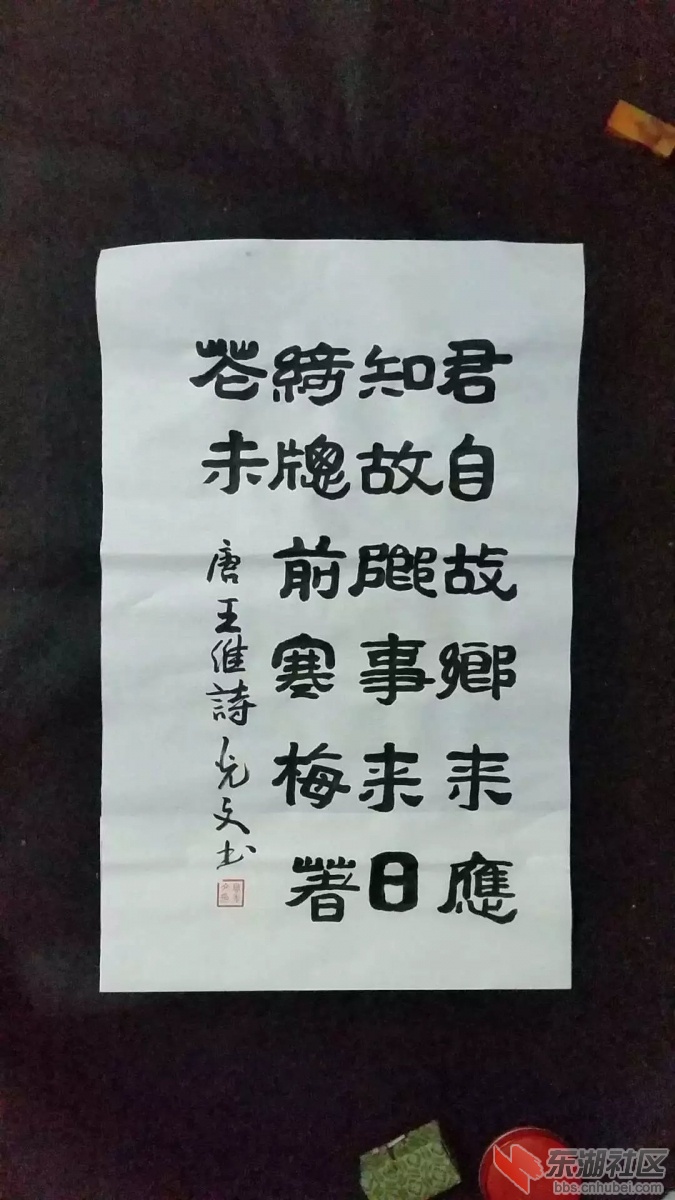 君自故鄉来應
知故鄉事来日
綺牕前寒梅著
花未
唐王維詩 光文书
东湖社区
bbs.cnhubei.com